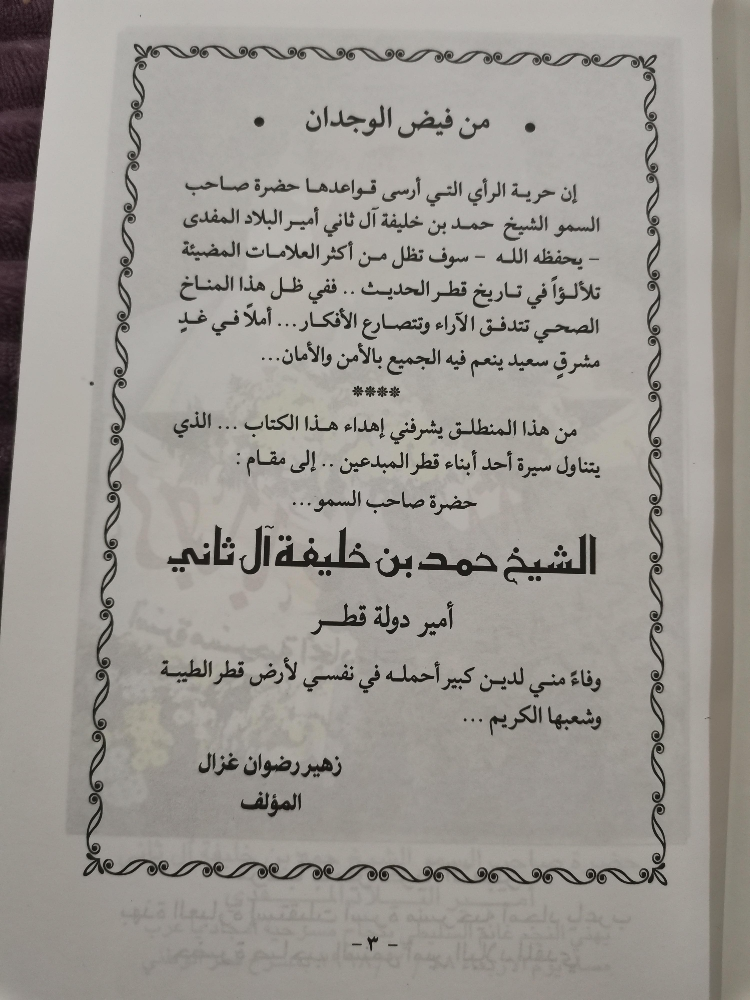 • من فيض الوجدان •
إن حرية الرأي التي أرسى قواعدها حضرة صاحب
السمو الشيخ حمد بن خليفة آل ثاني أمير البلاد المفدى
- يحفظه الله - سوف تظل من أكثر العلامات المضيئة
تلألؤاً في تاريخ قطر الحديث .. ففي ظل هذا المناخ
الصحي تتدفق الآراء وتتصارع الأفكار... أملاً في غدٍ
مشرقٍ سعيد ينعم فيه الجميع بالأمن والأمان...
****
من هذا المنطلق يشرفني إهداء هذا الكتاب ... الذي
يتناول سيرة أحد أبناء قطر المبدعين .. إلى مقام :
حضرة صاحب السمو...
الشيخ حمد بن خليفة آل ثاني
أمير دولة قطر
وفاءً مني لدين كبير أحمله في نفسي لأرض قطر الطيبة
وشعبها الكريم ...
زهير رضوان غزال
المؤلف
- ٣ -